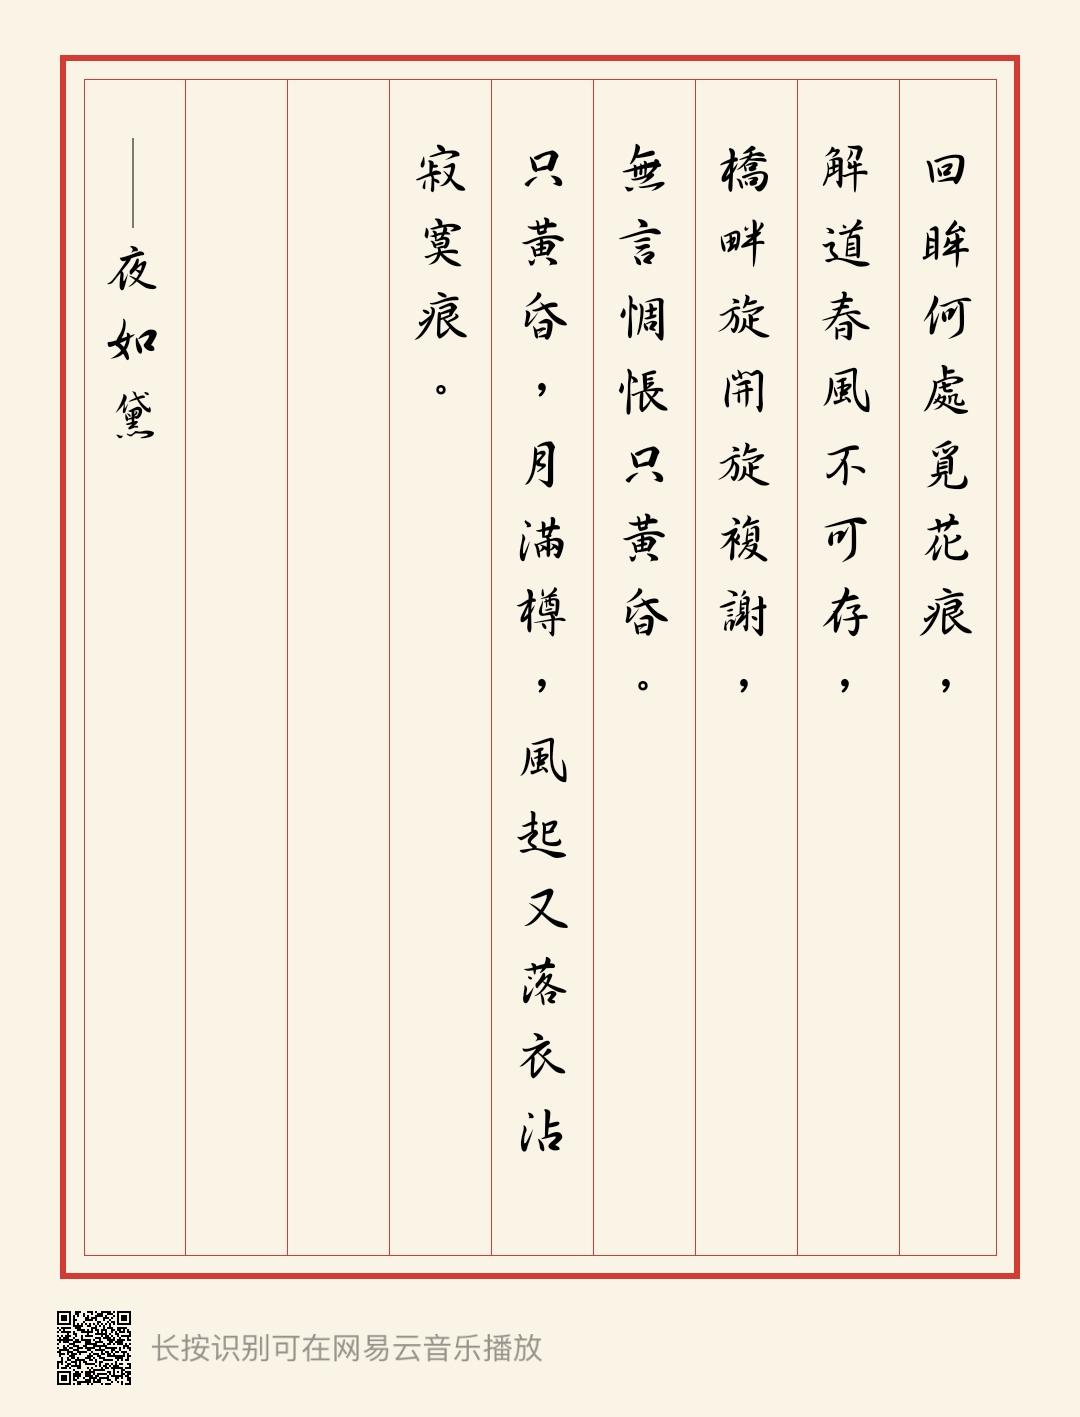 回眸何處覓花痕，
解道春風不可存，
橋畔旋開旋複謝，
無言惆悵只黃昏。
只黃昏，月滿樽，風起又落衣沾
寂寞痕。
——夜如黛
长按识别可在网易云音乐播放